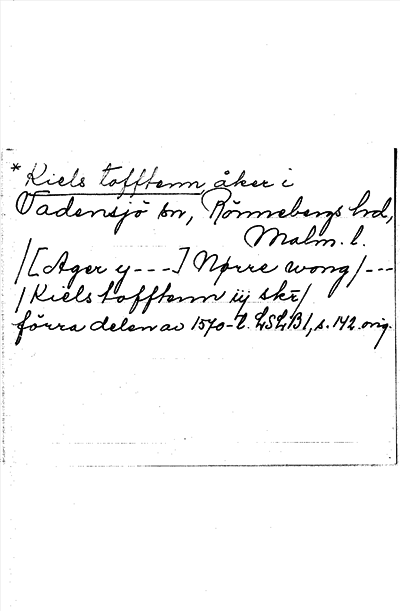 * Kiels tofftenn, åker i
Vadensjö sn, Rönnebergs hd,
Malm. l.
/[Ager y---] Nørre wong/---
/Kiels tofftenn iij skr̄/
förra delen av 1570-t. LSLB1, s. 142 orig.